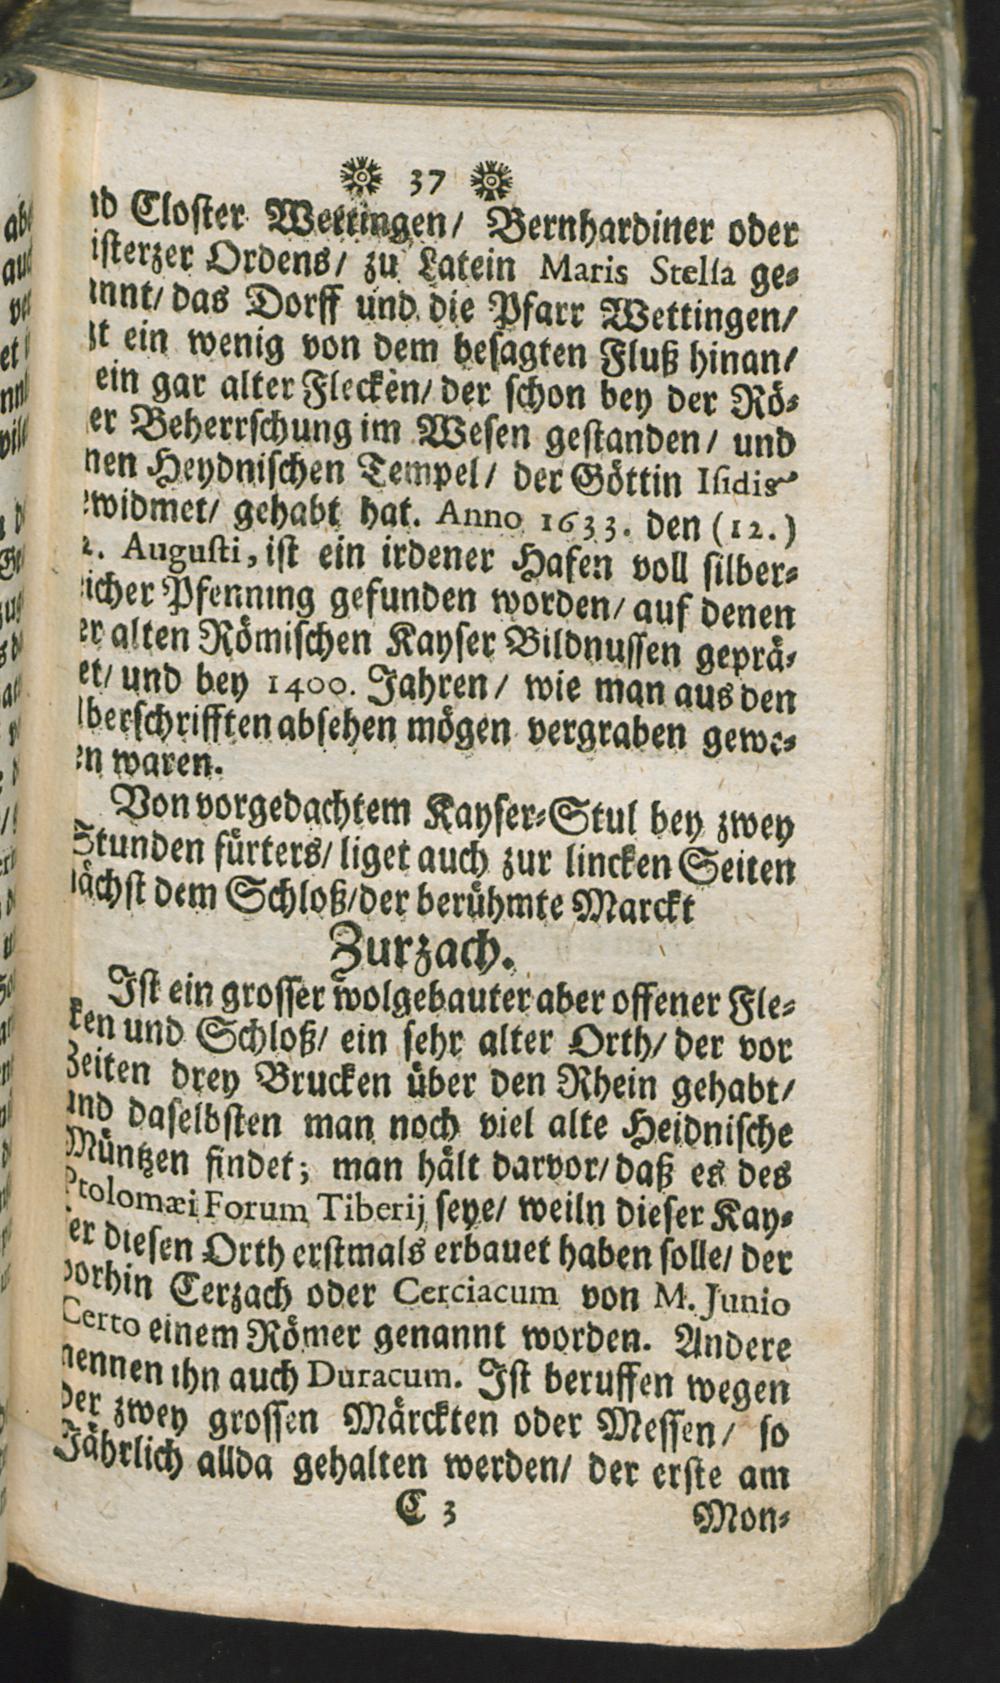 37
nd Closter Wettingen/ Bernhardiner oder
isterzer Ordens/ zu Latein Maris Stella ge-
annt/ das Dorff und die Pfarr Wettingen/
ein wenig von dem besagten Fluß hinan/
ein gar alter Flecken/ der schon bey der Rö-
er Beherrschung im Wesen gestanden/ und
nen Heydnischen Tempel/ der Göttin Isidis
ewidmet/ gehabt hat. Anno 1633. den (12.)
2. Augusti, ist ein irdener Hafen voll silber-
icher Pfenning gefunden worden/ auf denen
er alten Römischen Kayser Bildnussen geprä-
et/ und bey 1400. Jahren/ wie man aus den
berschrifften absehen mögen vergraben gewe-
en waren.
Von vorgedachtem Kayser-Stul bey zwey
Stunden fürters/ liget auch zur lincken Seiten
nächst dem Schloß/ der berühmte Marckt
Zurzach.
Ist ein grosser wolgebauter aber offener Fle-
ken und Schloß/ ein sehr alter Orth/ der vor
Zeiten drey Brucken über den Rhein gehabt/
und daselbsten man noch viel alte Heidnische
Müntzen findet; man hält darvor/ daß es des
Ptolomæi Forum Tiberij seye/ weiln dieser Kay-
ser diesen Orth erstmals erbauet haben solle/ der
vorhin Cerzach oder Cerciacum von M. Junio
Certo einem Römer genannt worden. Andere
nennen ihn auch Duracum. Ist beruffen wegen
der zwey grossen Märckten oder Messen/ so
Jährlich allda gehalten werden/ der erste am
C 3
Mon-